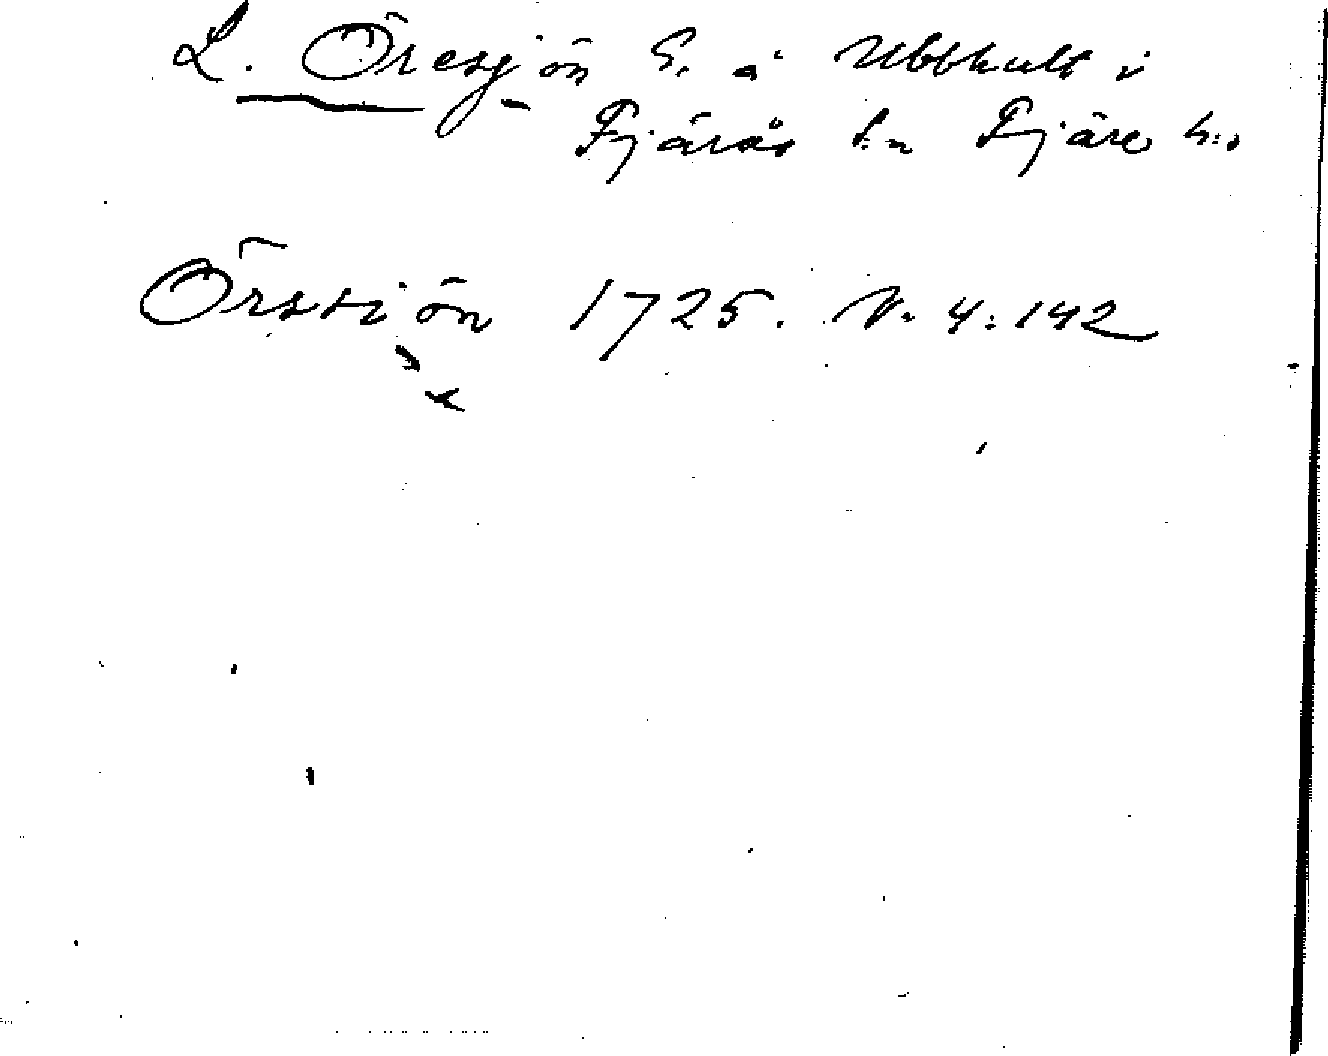 L. Öresjön S. å Ubbhult i
Fjärås s:n Fjäre h:d
Örssiön 1725. V. 4:142